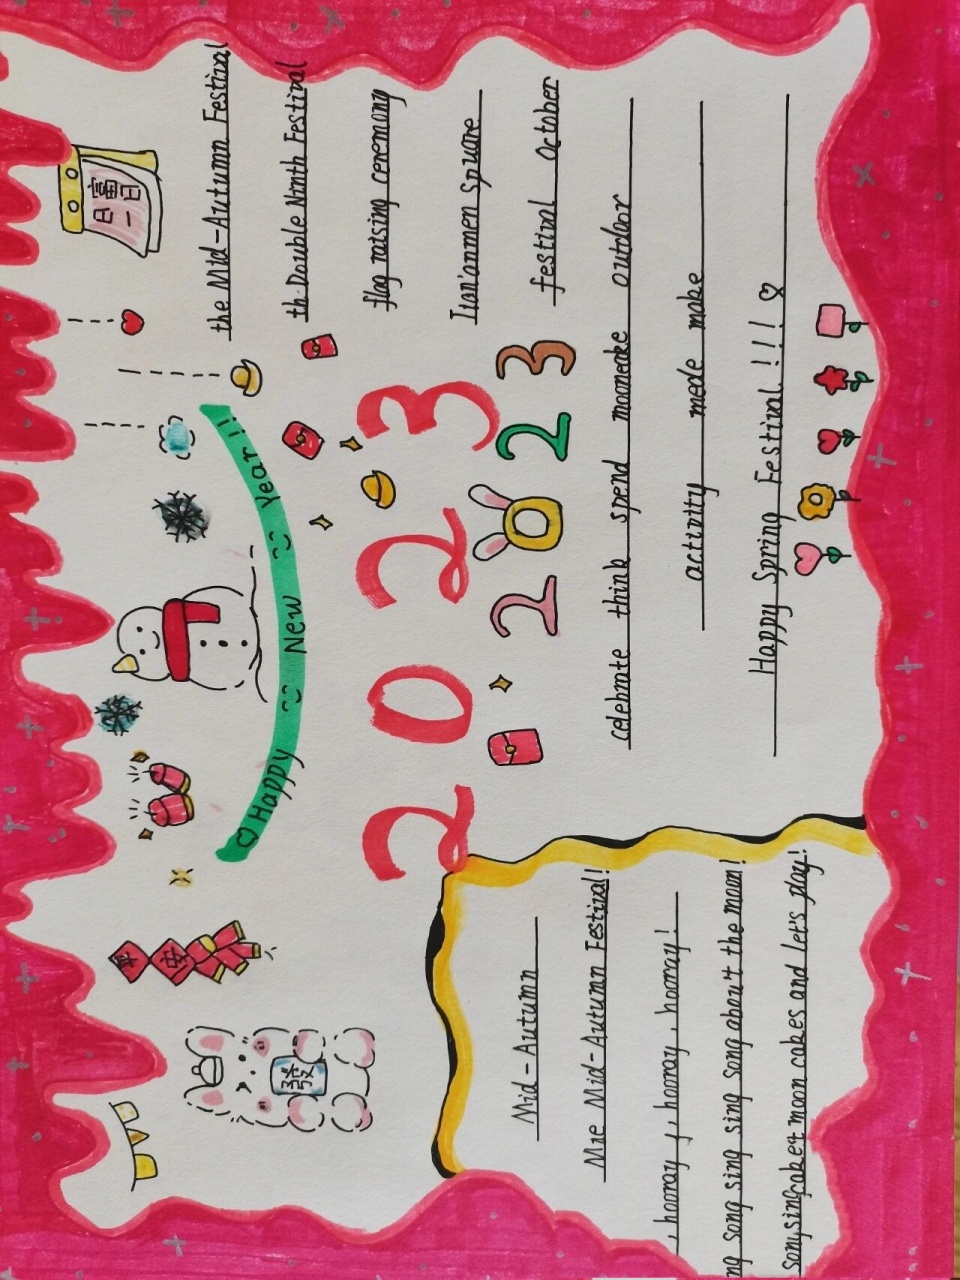 日富
一日
the Mid-Autumn Festival
th Double Ninth Festival
flag raising ceremony
Tian'anmen Square
festival October
平
安
發
Happy New Year!!
2023
2023
celebrate think spend mooncake outdoor
activity mede make
Happy Spring Festival!!!!
Mid-Autumn
Mid-Autumn Festival!
, hooray, hooray, hooray!
ng song sing sing song about the moon!
moon cakes and let's play!